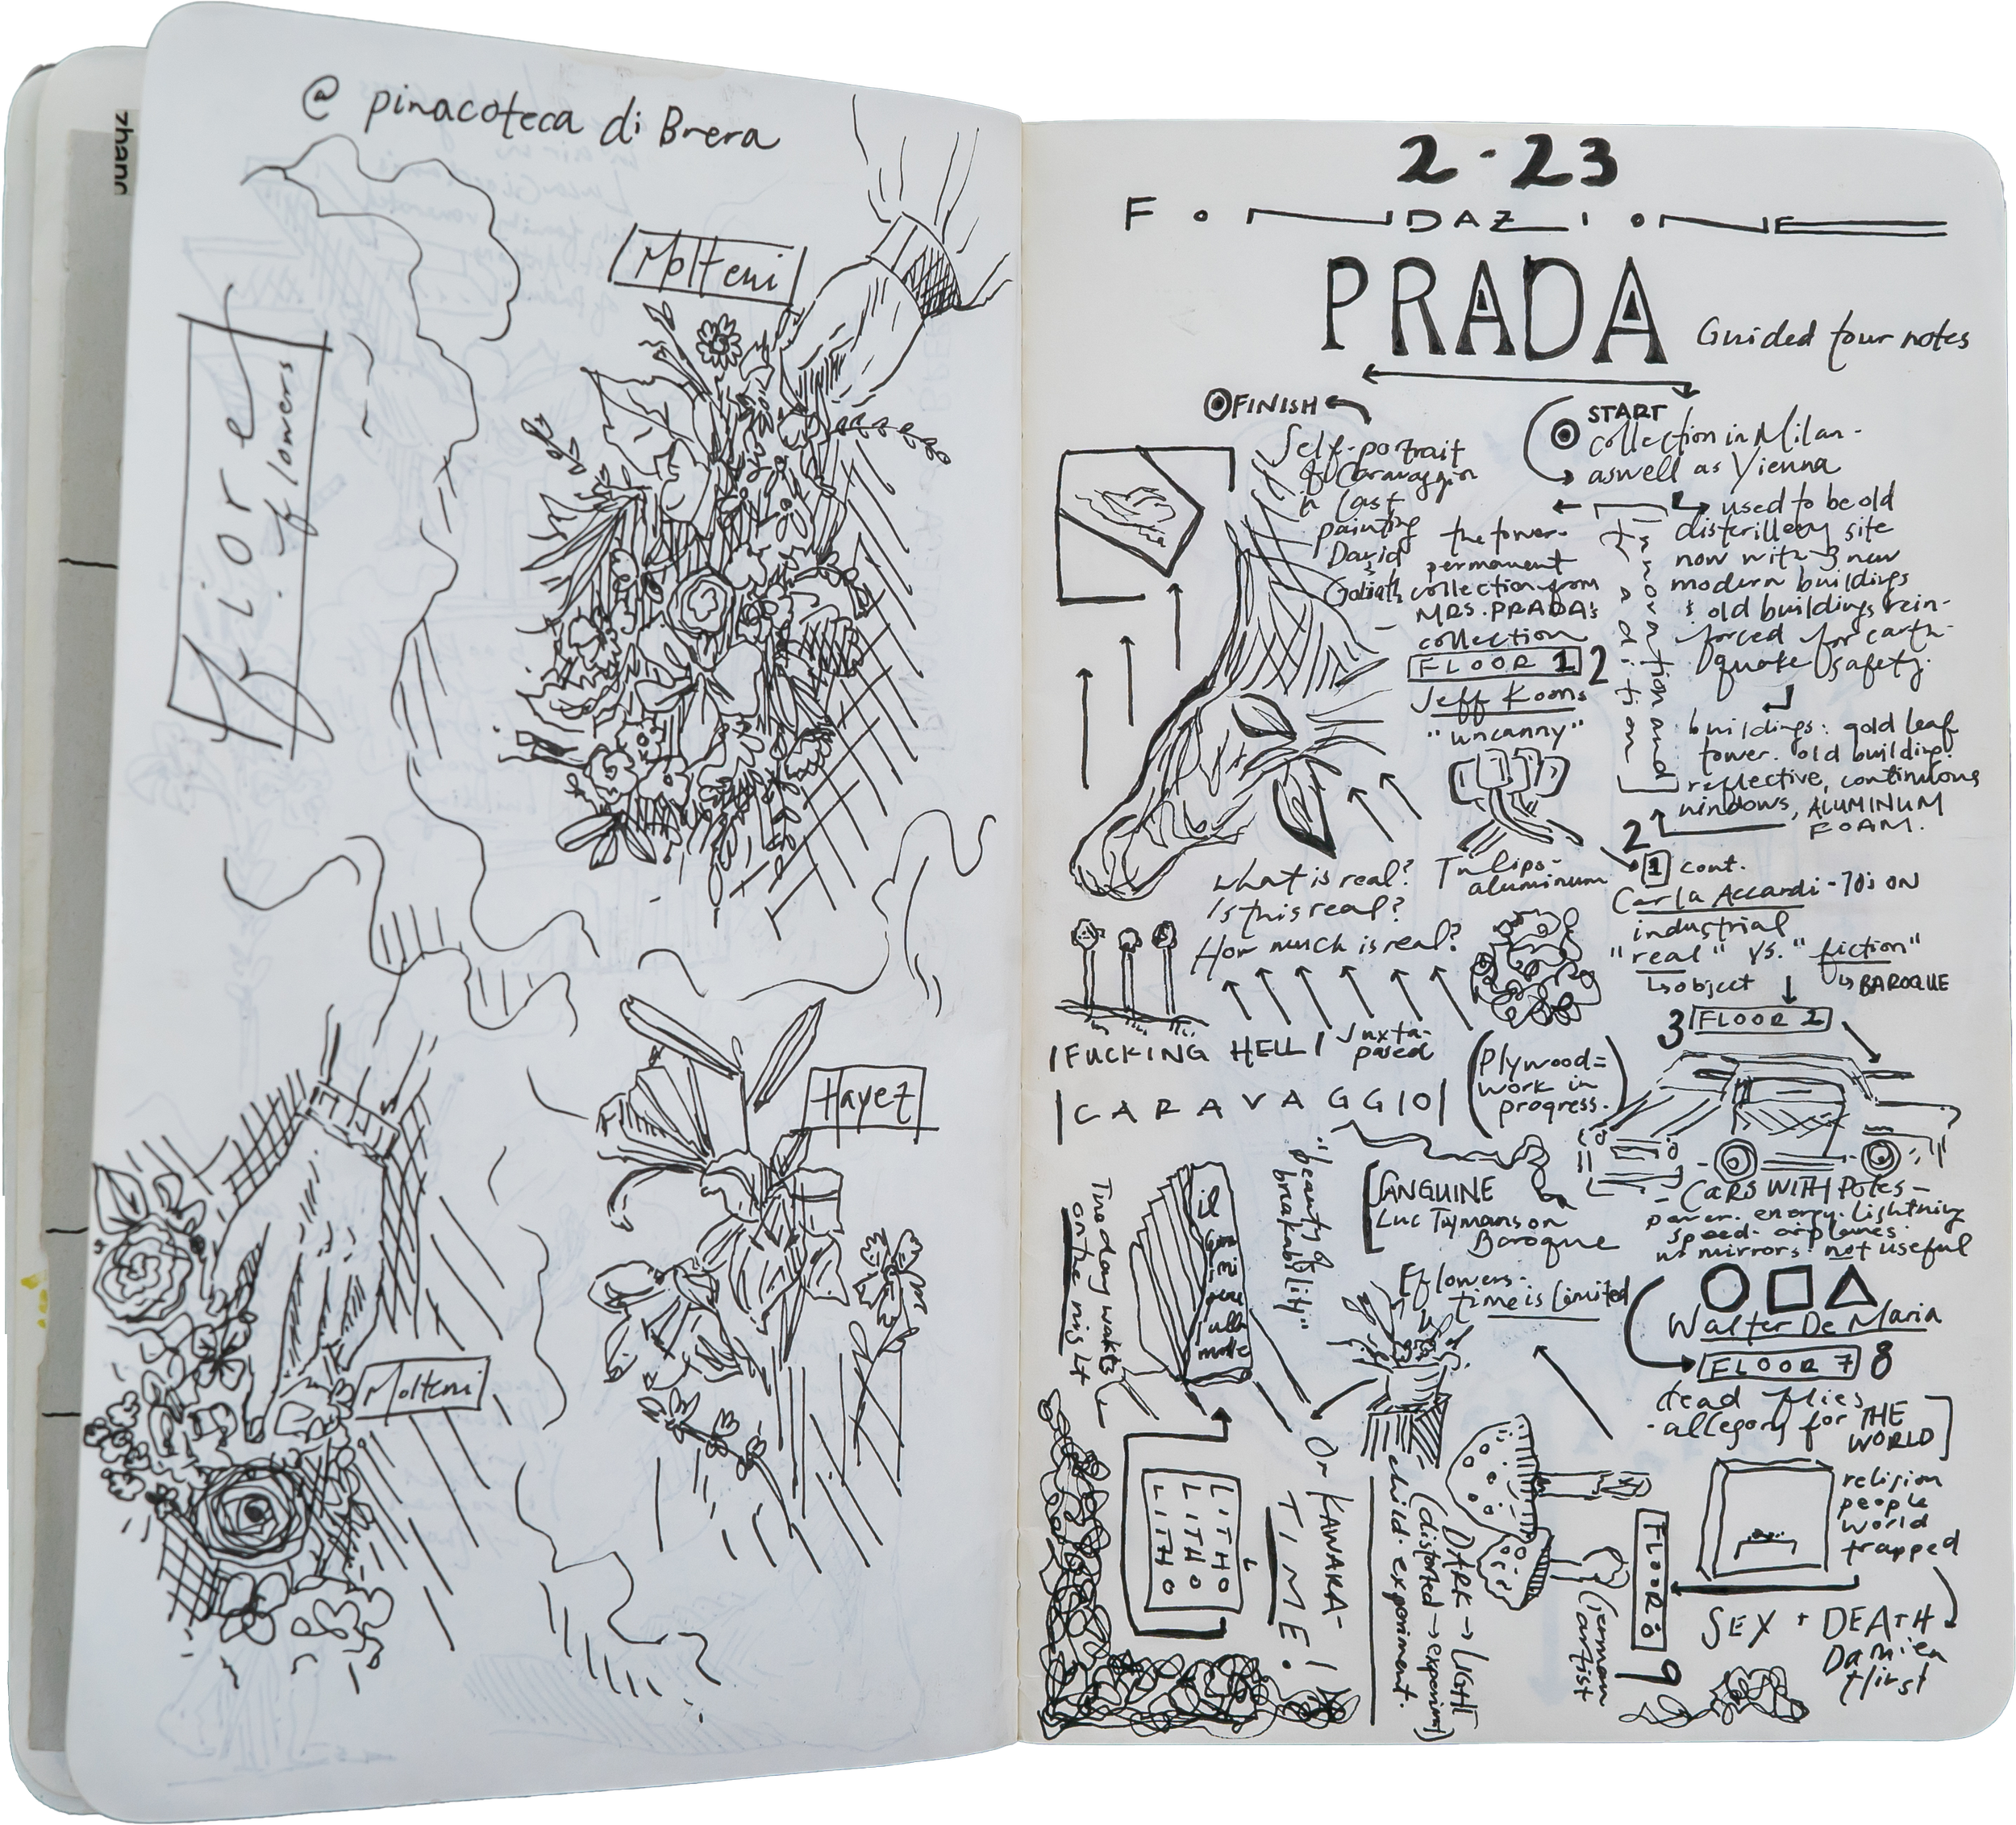 zhang
@ pinacoteca di Brera
Molteni
Fiore
flowers
Hayez
Molteni
2-23
FONDAZIONE
PRADA
Guided tour notes
FINISH
START
collection in Milan -
aswell as Vienna
Self-portrait
of Caravaggio
in last
painting
David
&
Goliath
the tower-
permanent
collection from
MRS. PRADA's
collection
FLOOR 1 2
Jeff Koons
"uncanny"
Tulips-
aluminum
Innovation and
tradition
used to be old
disterillery site
now with 3 new
modern buildings
& old buildings rein-
forced for earth-
quake safety.
buildings: gold leaf
tower. old building.
reflective, continuous
windows, ALUMINUM
FOAM.
2
1 cont.
Carla Accardi - 70s ON
industrial
"real" vs. "fiction"
object
BAROQUE
3 FLOOR 2
What is real?
Is this real?
How much is real?
FUCKING HELL
Juxta-
posed
CARAVAGGIO
(Plywood=
work in
progress.)
- CARS WITH POLES -
power. energy. lightning
speed. airplanes.
no mirrors. not useful
Walter De Maria
FLOOR 7 8
dead flies
- allegory for THE
WORLD
religion
people
world
trapped
SEX + DEATH
Damien
Hirst
FLOOR 9
German
artist
SANGUINE
Luc Tuymans on
Baroque
flowers-
time is limited
"beauty of
breakability"
The day waits
on the
il
LITHO
LITHO
LITHO
On KAWARA-
TIME!
DARK → LIGHT
(distorted →
child. experiment.